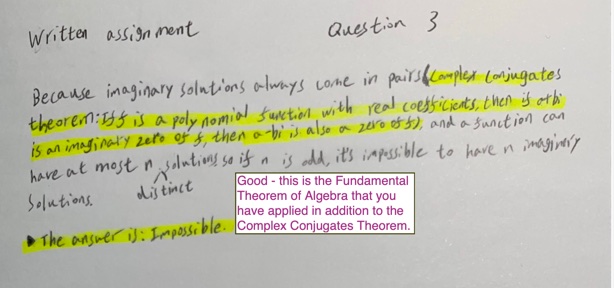 Written assignment Question 3
Because imaginary solutions always come in pairs(Complex Conjugates
theorem: If f is a polynomial function with real coefficients, then if a+bi
is an imaginary zero of f, then a-bi is also a zero of f), and a function can
have at most n solutions so if n is odd, it's impossible to have n imaginary
distinct
solutions.
Good - this is the Fundamental
Theorem of Algebra that you
have applied in addition to the
Complex Conjugates Theorem.
▶ The answer is: Impossible.